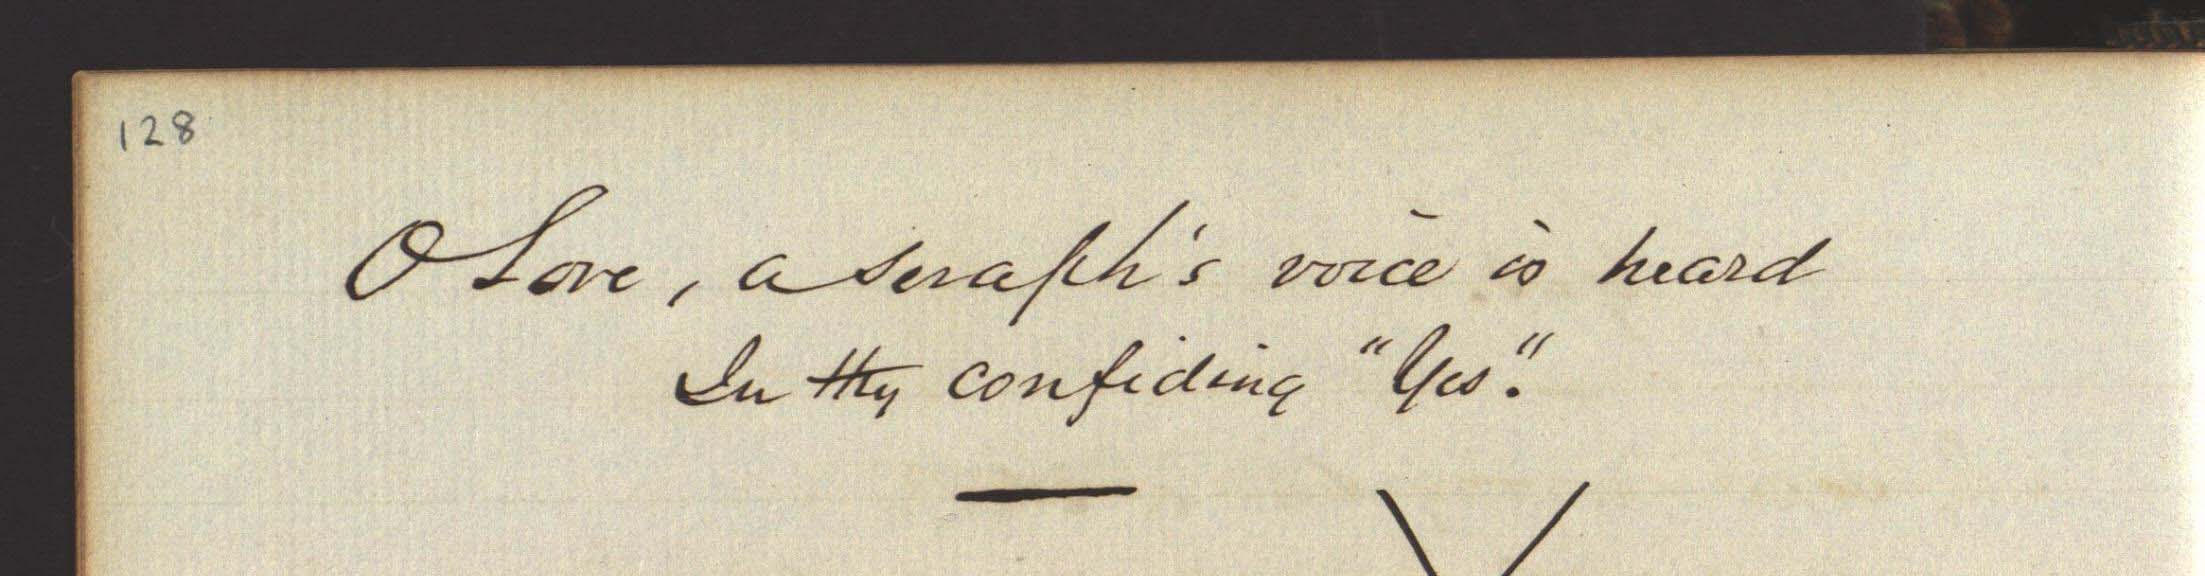 128
O Love, a seraph's voice is heard
In thy confiding "Yes".